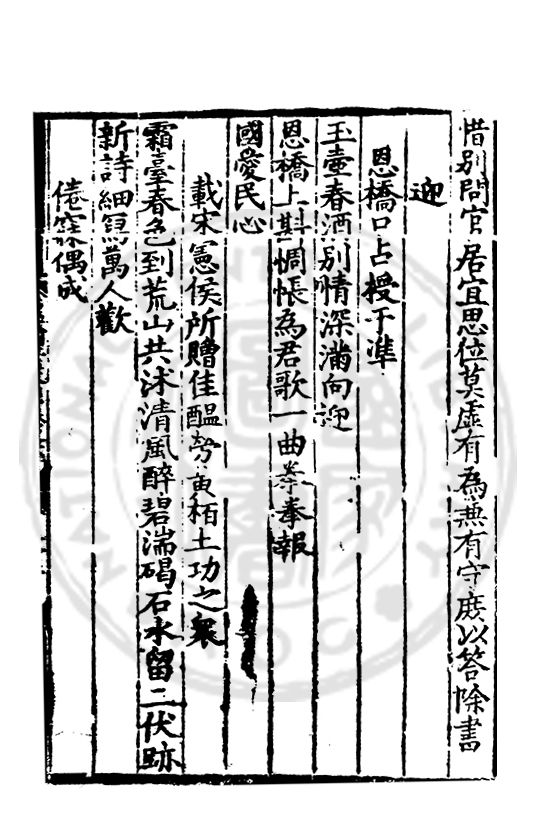 惜别問官居宜思位莫虚有為無有守庶以答除書
迎
恩橋口占授于準
玉壷春酒别情深滿向迎
恩橋上斟惆悵為君歌一曲拳拳報
國愛民心
載宋憲侯所贈佳醖勞黄栢土功之衆
霜臺春色到荒山共沐清風醉碧湍碣石水留二伏跡
新詩細寫萬人歡
倦寐偶成